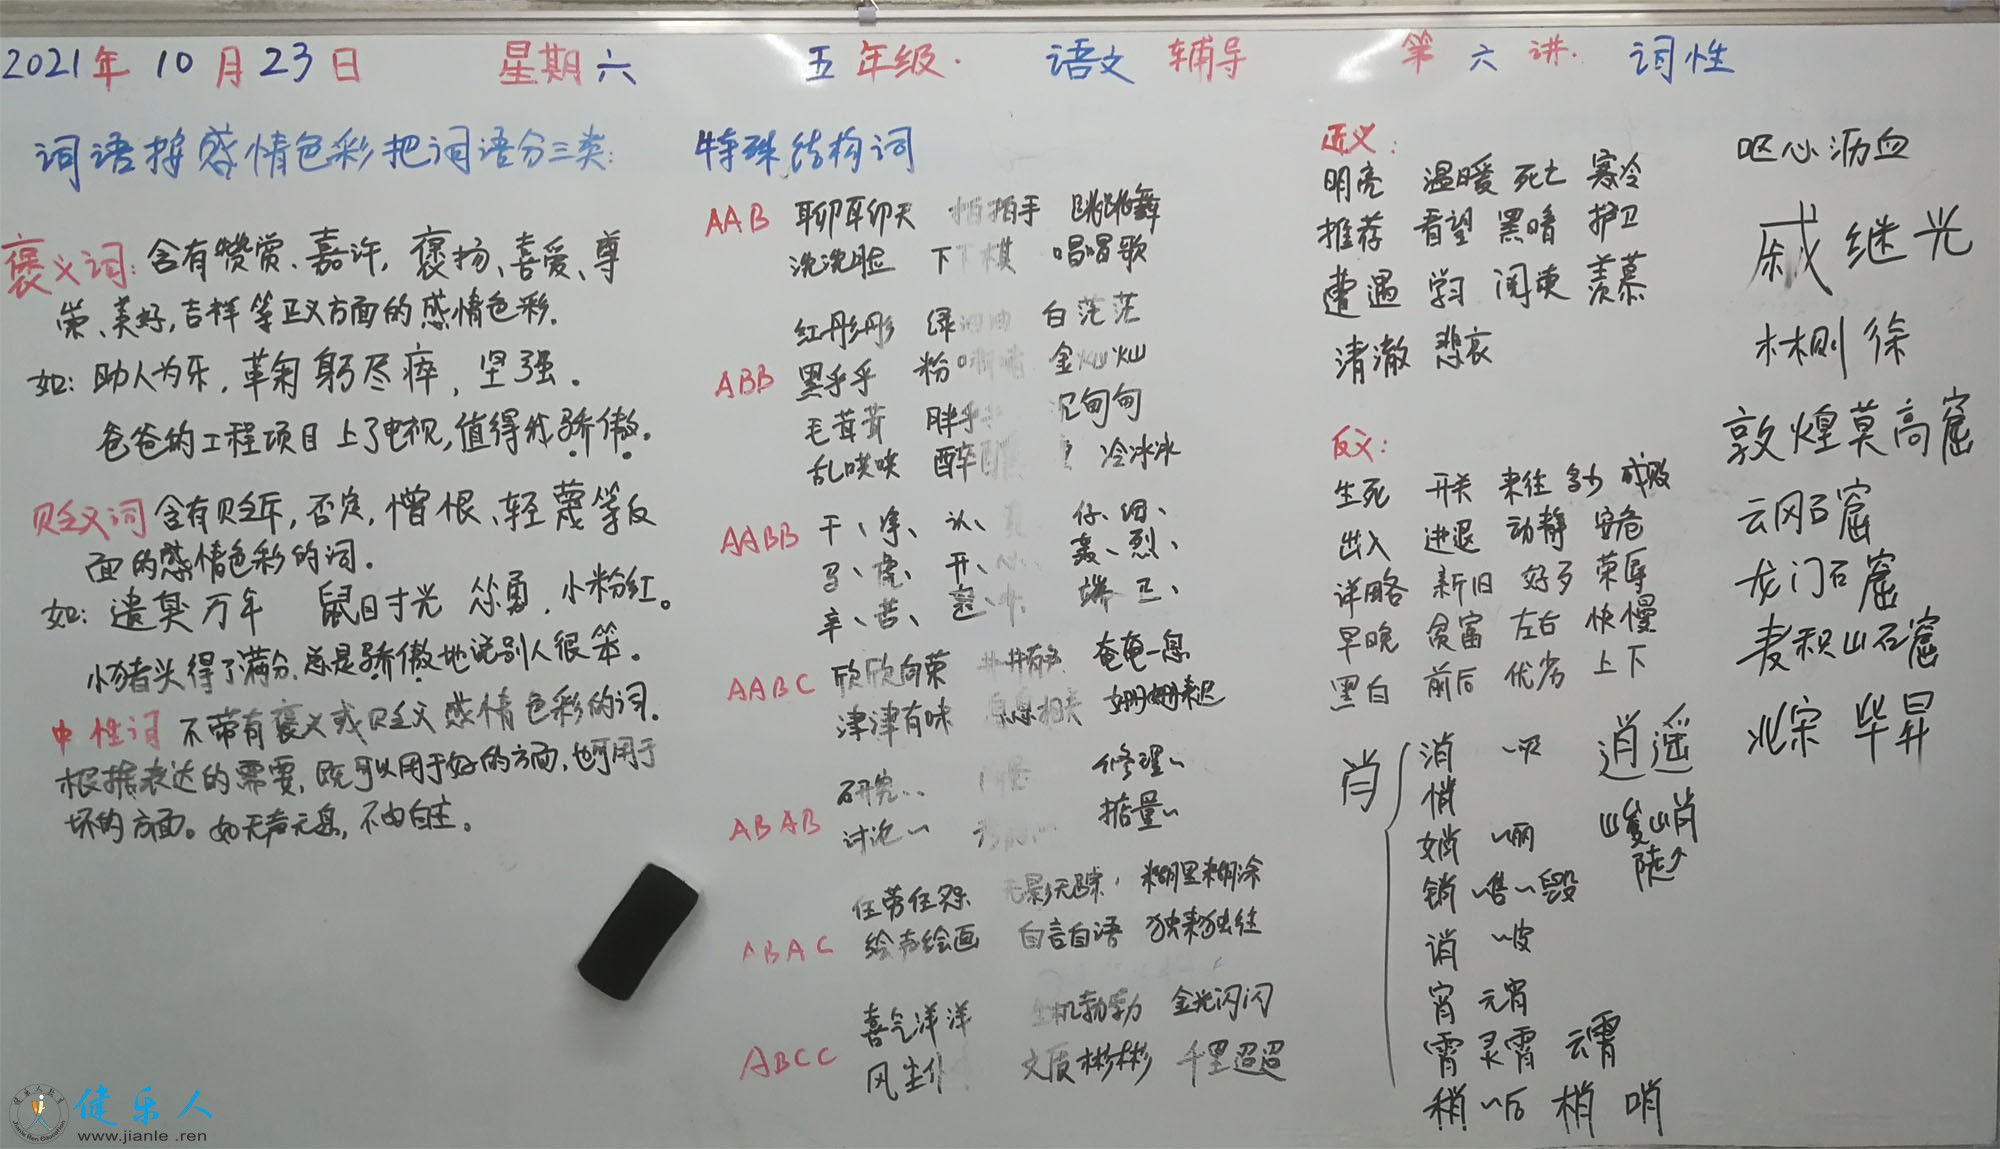 2021年10月23日 星期六 五年级· 语文 辅导 第六讲· 词性
词语按感情色彩把词语分三类:
褒义词: 含有赞赏、嘉许, 褒扬、喜爱、尊
荣、美好, 吉祥等正义方面的感情色彩.
如: 助人为乐, 鞠躬尽瘁, 坚强。
爸爸的工程项目上了电视, 值得我骄傲。
贬义词 含有贬斥, 否定, 憎恨、轻蔑等反
面的感情色彩的词.
如: 遗臭万年 鼠目寸光 怂勇, 小粉红。
小猪头得了满分, 总是骄傲地说别人很笨。
中性词 不带有褒义或贬义感情色彩的词.
根据表达的需要, 既可以用于好的方面, 也可用于
坏的方面。如无声无息, 不由自主。
特殊结构词
AAB 聊聊天 拍拍手 跳跳舞
洗洗脸 下下棋 唱唱歌
红彤彤 绿油油 白茫茫
ABB 黑乎乎 粉嘟嘟 金灿灿
毛茸茸 胖乎乎 沉甸甸
乱哄哄 醉醺醺 冷冰冰
AABB 干、净、 认、真 仔、细、
马、虎、 开、心、 轰、烈、
辛、苦、
AABC 欣欣向荣 井井有条 奄奄一息
津津有味 息息相关 姗姗来迟
研究.. 修理~
ABAB 讨论~ 掂量~
任劳任怨 无影无踪, 糊里糊涂
ABAC 绘声绘画 自言自语 独来独往
喜气洋洋 生机勃勃 金光闪闪
ABCC 风尘仆 文质彬彬 千里迢迢
近义:
明亮 温暖 死亡 寒冷
推荐 看望 黑暗 护卫
遭遇 学习 阅读 羡慕
清澈 悲哀
反义:
生死 开关 来往 多少 成败
出入 进退 动静 安危
详略 新旧 好歹 荣辱
早晚 贫富 左右 快慢
黑白 前后 优劣 上下
肖 消 ~灭 逍遥
悄
娋 ~丽 峻峭
销 ~售~毁 陡↗
诮 ~皮
宵 元宵
霄 灵霄 云霄
稍 ~后 梢 哨
呕心沥血
戚继光
林则徐
敦煌莫高窟
云冈石窟
龙门石窟
麦积山石窟
北宋 毕昇
健乐人
www.jianle .ren